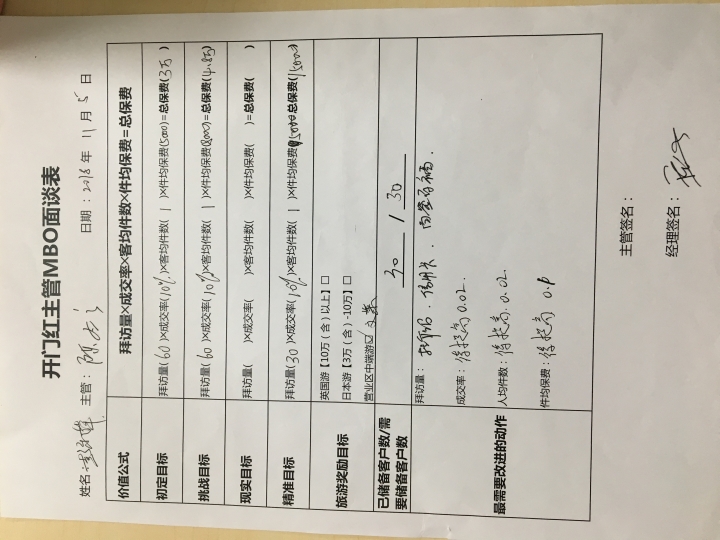 开门红主管MBO面谈表
姓名： 主管： 日期：2018年 11月 5日
价值公式 拜访量×成交率×客均件数×件均保费=总保费
初定目标 拜访量(60)×成交率(10%)×客均件数( 1 )×件均保费(5000)=总保费(3万)
挑战目标 拜访量(60)×成交率(10%)×客均件数( 1 )×件均保费(8000)=总保费(4.8万)
现实目标 拜访量( )×成交率( )×客均件数( )×件均保费( )=总保费( )
精准目标 拜访量(30)×成交率(10%)×客均件数( 1 )×件均保费(5000)=总保费(15000)
旅游奖励目标 英国游【10万（含）以上】□
日本游【3万（含）-10万】□
营业区中端游☑
已储备客户数/需要储备客户数 30 / 30
最需要改进的动作 拜访量：
成交率：提高0.02.
人均件数：提高0.02.
件均保费：提高
主管签名：
经理签名：